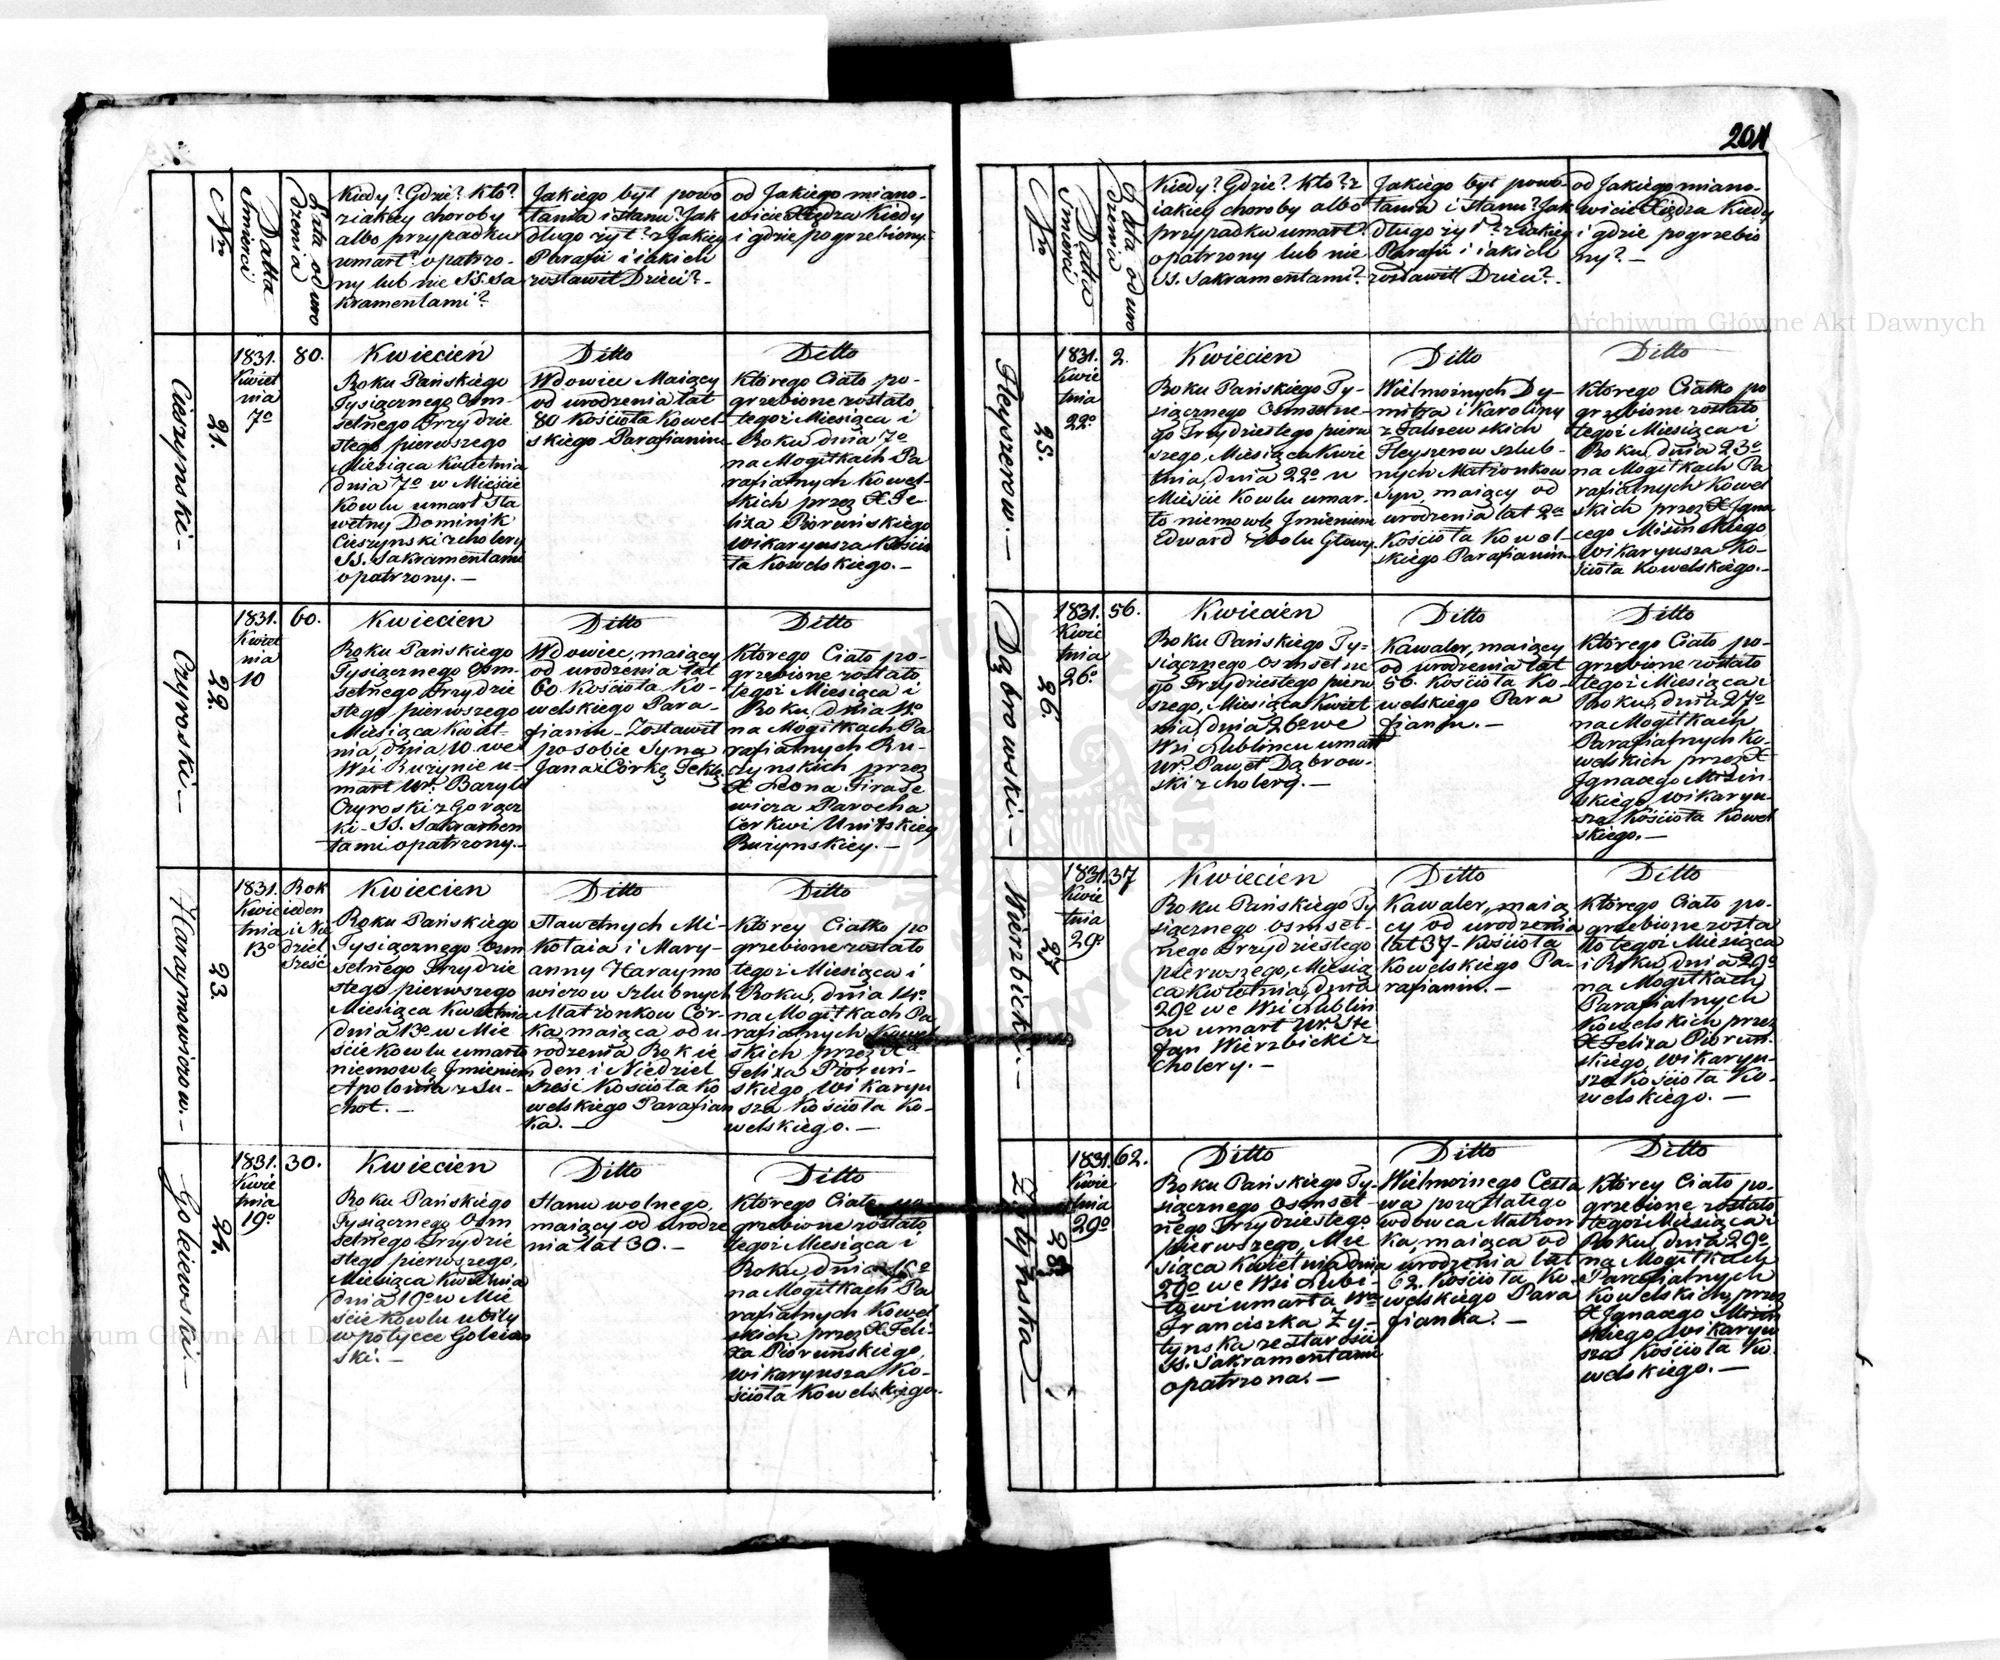 201
Nro
Datta Śmierci
Lata od uro dzenia
Kiedy? Gdzie? Kto?
z iakiey choroby
albo przypadku
umarł? opatrzo-
ny lub nie SS. Sa
kramentami?
Jakiego był powo
łania i stanu? Jak
długo żył? z Jakiey
Parafii i iakich
zostawił Dzieci? -
od Jakiego miano-
wicie Xiędza Kiedy
i gdzie pogrzebiony.
Cieszynski -
21.
1831.
Kwiet
nia
7o
80.
Kwiecień
Roku Pańskiego
Tysiącznego Ośm-
setnego Trzydzie
stego pierwszego
Miesiąca Kwietnia
dnia 7o w Mieście
Kowlu umarł Sła
wetny Dominik
Cieszynski z cholery
SS. Sakramentami
opatrzony. -
Ditto
Wdowiec Maiący
od urodzenia lat
80 Kościoła Kowel-
skiego Parafianin
Ditto
Którego Ciało po-
grzebione zostało
tegoż Miesiąca i
Roku dnia 7o
na Mogiłkach Pa
rafialnych Kowel-
skich przez X Fe
lixa Piorunskiego
Wikaryusza Kościo
ła Kowelskiego. -
Czyroski. -
22.
1831.
Kwiet
nia
10
60.
Kwiecien
Roku Pańskiego
Tysiącznego Osm-
setnego trzydzie
stego pierwszego
Miesiąca Kwiet-
nia, dnia 10 we
Wsi Ruzynie u-
marł Ur. Bazyli
Czyroski z Gorącz
ki - SS. Sakramen
tami opatrzony. -
Ditto
Wdowiec, maiący
od urodzenia lat
60. Kościoła Ko-
welskiego Para-
fianin - Zostawił
po sobie Syna
Jana i Córkę Teklę.
Ditto
Którego Ciało po-
grzebione zostało
tegoż Miesiąca i
Roku, dnia 11o
na Mogiłkach Pa
rafialnych Ru-
zynskich przez
X Leona
wicza Parocha
Cerkwi Unitskiey
Ruzynskiey. -
Haraymowiczow. -
23.
1831.
Kwie
tnia
13o
Rok
ieden
i Nie
dziel
sześć
Kwiecien
Roku Pańskiego
Tysiącznego Osm
setnego Trzydzie
stego pierwszego
Miesiąca Kwietnia
dnia 13o w Mie
ście Kowlu umarło
niemowlę Jmieniem
Apolonia z Su-
chot. -
Ditto
Sławetnych Mi-
kołaia i Mary-
anny Haraymo
wiczow Szlubnych
Małżonkow Cór-
ka, maiąca od u
rodzenia Rok ie
den i Niedziel
sześć Kościoła Ko
welskiego Parafian
ka. -
Ditto
Którey Ciałko po
grzebione zostało
tegoż Miesiąca i
Roku, dnia 14o
na Mogiłkach Pa
rafialnych Kowel
skich przez X
Felixa Piorun-
skiego, Wikaryu
sza Kościoła Ko-
welskiego. -
Goleiewski. -
24.
1831.
Kwie
tnia
19o
30.
Kwiecien
Roku Pańskiego
Tysiącznego Osm
setnego Trzydzie
stego pierwszego,
Miesiąca Kwietnia
dnia 19o w Mie
ście Kowlu ubity
w potyczce Goleiew
ski. -
Ditto
Stanu wolnego,
maiący od urodze
nia lat 30. -
Ditto
Którego Ciało po
grzebione zostało
tegoż Miesiąca i
Roku, dnia
na Mogiłkach Pa
rafialnych Kowel
skich przez X Feli-
xa Piorunskiego,
wikaryusza Ko-
ścioła Kowelskiego.
Nro
Datta Śmierci
Lata od uro dzenia
Kiedy? Gdzie? Kto? z
iakiey choroby albo
przypadku umarł?
opatrzony lub nie
SS. Sakramentami?
Jakiego był powo-
łania i stanu? Jak
długo żył? z Jakiey
Parafii i iakich
zostawił Dzieci? -
od Jakiego miano-
wicie Xiędza Kiedy
i gdzie pogrzebio
ny? -
Fleyszerow. -
25.
1831.
Kwie
tnia
22o
2.
Kwiecien
Roku Pańskiego Ty-
siącznego Osmsetne-
go Trzydziestego pierw
szego, Miesiąca Kwie
tnia, dnia 22o w
Mieście Kowlu umar-
ło niemowlę Jmieniem
Edward z bolu Głowy.
Ditto
Wielmożnych Dy-
mitra i Karoliny
z Falszewskich
Fleyszerow szlub-
nych Małżonkow
Syn, maiący od
urodzenia lat 2a
Kościoła Kowel-
skiego Parafianin
Ditto
Którego Ciałko po
grzebione zostało
tegoż Miesiąca i
Roku, dnia 23o
na Mogiłkach Pa
rafialnych Kowel
skich przez X Jgna
cego
Wikaryusza Ko-
ścioła Kowelskiego. -
Dąbrowski. -
26.
1831.
Kwie
tnia
26o
56.
Kwiecien
Roku Pańskiego Ty-
siącznego Osmsetne
go Trzydziestego pierw
szego, Miesiąca Kwiet
nia, dnia 26o we
Wsi Lublincu umarł
Ur. Paweł Dąbrow-
ski z cholerą. -
Ditto
Kawaler, maiący
od urodzenia lat
56. Kościoła Ko-
welskiego Para
fianin. -
Ditto
Którego Ciało po-
grzebione zostało
tegoż Miesiąca i
Roku, dnia 27o
na Mogiłkach
Parafialnych Ko-
welskich przez X
Jgnacego
skiego, wikaryu-
sza Kościoła Kowel
skiego. -
Wierzbicki. -
27
1831.
Kwie
tnia
29o
37
Kwiecien
Roku Pańskiego Ty
siącznego Osmset-
nego Trzydziestego
pierwszego, Miesią
ca Kwietnia, dnia
29o we Wsi Lublin
cu umarł Ur. Ste
fan Wierzbicki z
Cholery. -
Ditto
Kawaler, maią
cy od urodzenia
lat 37 - Kościoła
Kowelskiego Pa-
rafianin. -
Ditto
Którego Ciało po-
grzebione zosta
ło tegoż Miesiąca
i Roku, dnia 29o
na Mogiłkach
Parafialnych
Kowelskich przez
X Felixa Piorun-
skiego, wikaryu-
sza Kościoła Ko-
welskiego. -
Żytyńska -
28.
1831.
Kwie
tnia
29o
62.
Ditto
Roku Pańskiego Ty-
siącznego Osmset-
nego Trzydziestego
pierwszego, Mie
siąca Kwietnia dnia
29o we Wsi Lubi-
towi umarła Wa
Franciszka Ży-
tynska ze starości
SS. Sakramentami
opatrzona. -
Ditto
Wielmożnego
wa pozostałego
wdowca Małżon
ka, maiąca od
urodzenia lat
62. Kościoła Ko
welskiego Para
fianka. -
Ditto
Którey Ciało po-
grzebione zostało
tegoż Miesiąca i
Roku, dnia 29o
na Mogiłkach
Parafialnych
Kowelskich, przez
X Jgnacego
skiego, wikaryu
sza Kościoła Ko
welskiego. -
Archiwum Główne Akt Dawnych